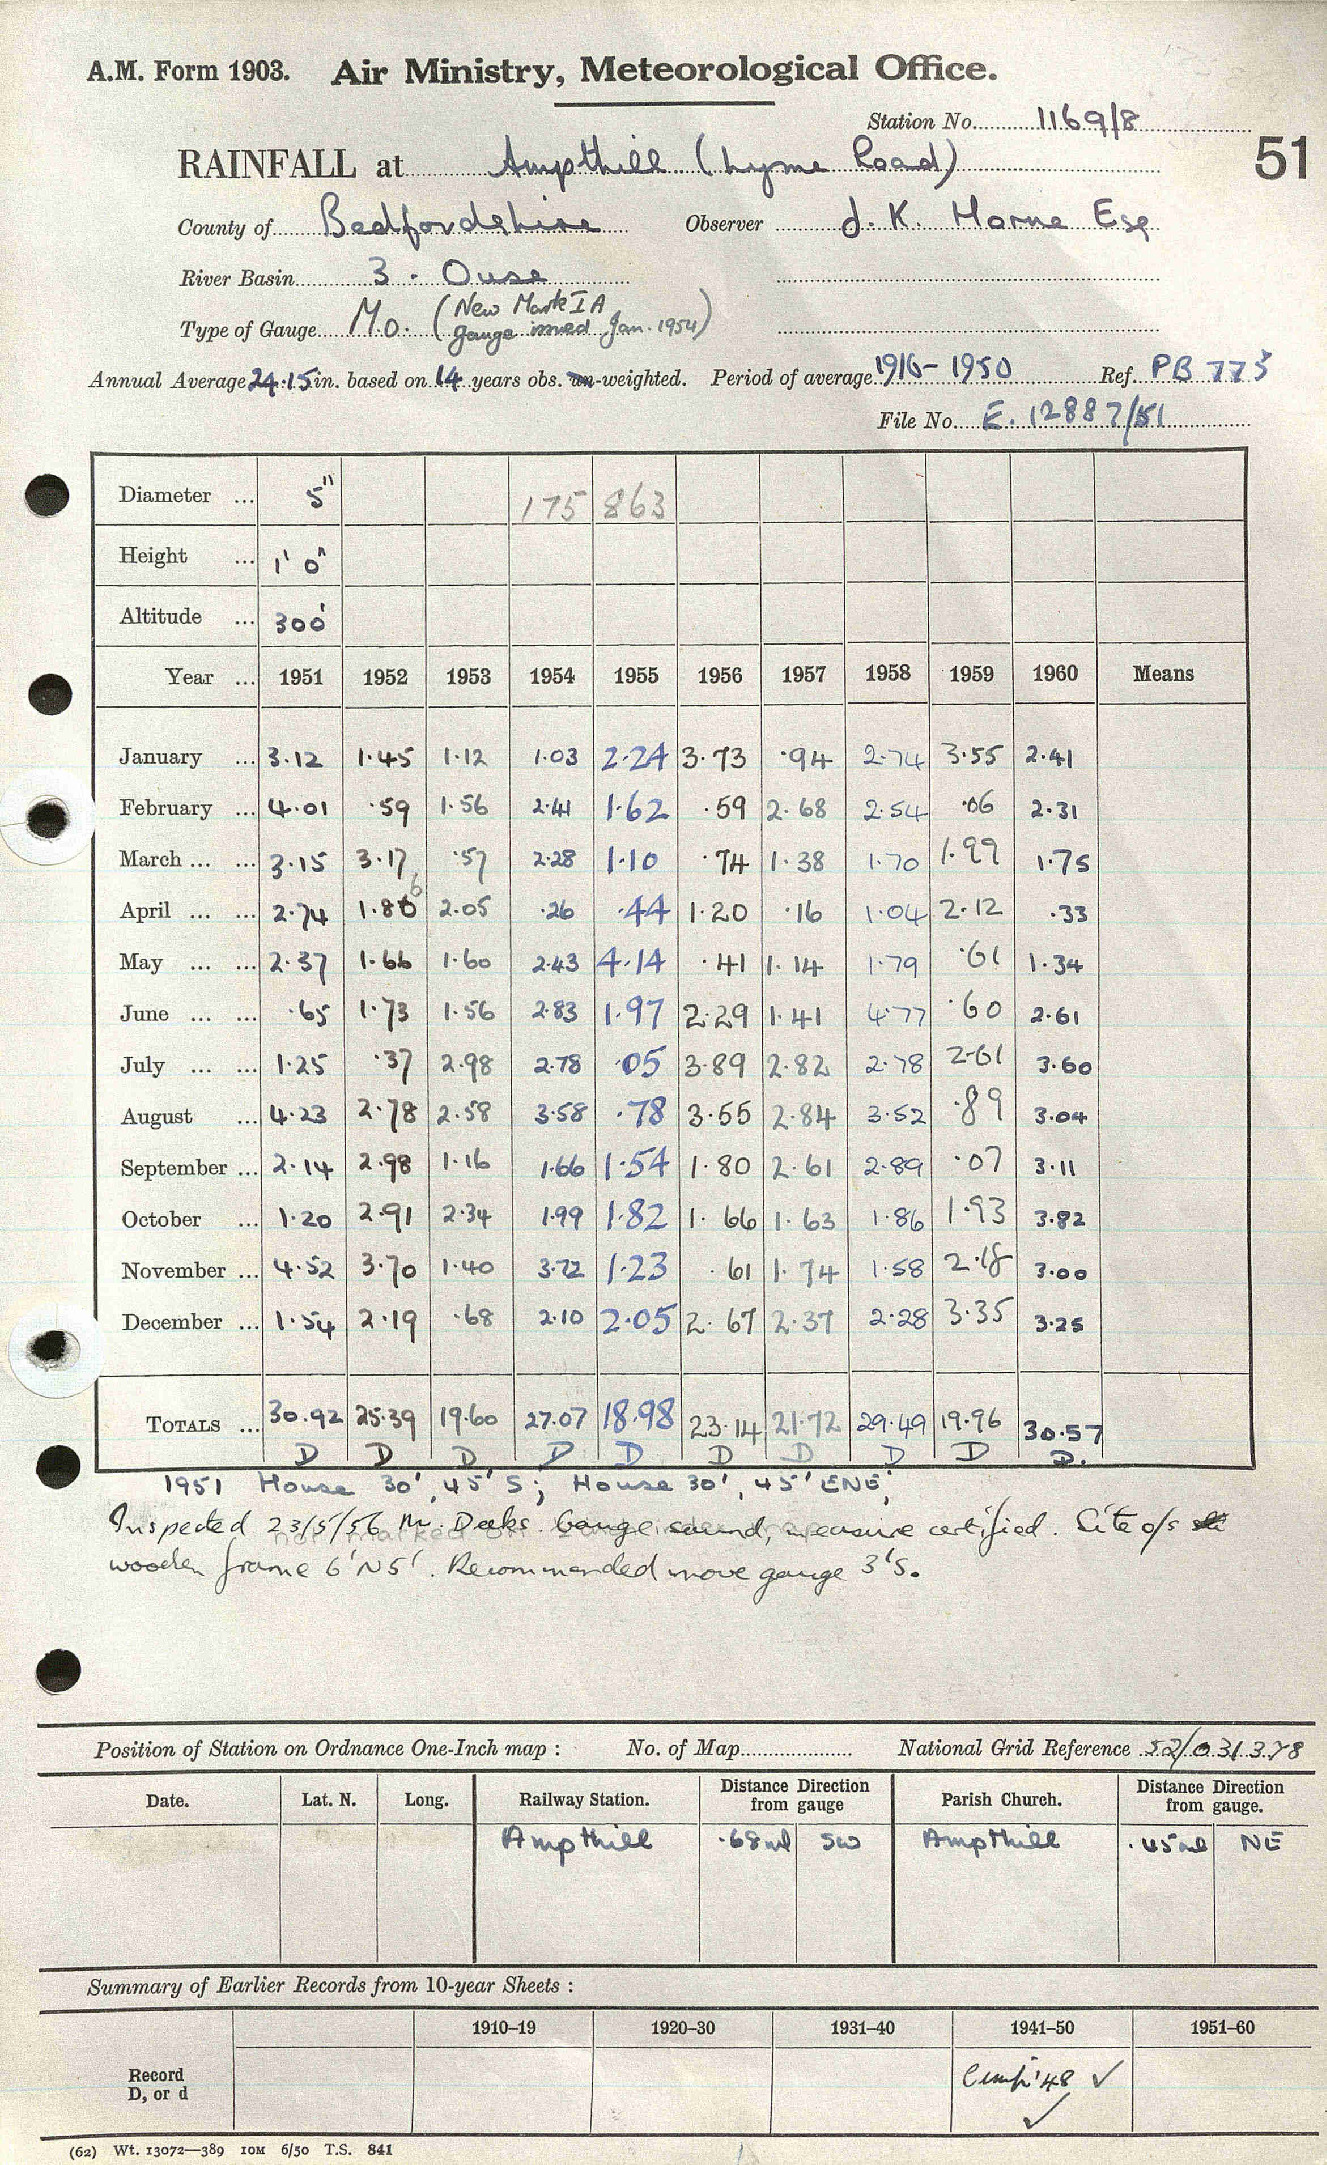 A.M. Form 1903. Air Ministry, Meteorological Office.
Station No. 1169/8
51
RAINFALL at Ampthill (Lyme Road)
County of Bedfordshire Observer J. K. Horne Esq
River Basin 3 . Ouse
Type of Gauge Mo. (New Mark IA gauge issued Jan. 1954)
Annual Average 24.15 in. based on 14 years obs. un-weighted. Period of average 1916-1950 Ref. PB 773
File No. E. 12887/51
Diameter ... 5" 175 863
Height ... 1' 0"
Altitude ... 300'
Year ... 1951 1952 1953 1954 1955 1956 1957 1958 1959 1960 Means
January ... 3.12 1.45 1.12 1.03 2.24 3.73 .94 2.74 3.55 2.41
February ... 4.01 .59 1.56 2.41 1.62 .59 2.68 2.54 .06 2.31
March ... ... 3.15 3.17 .57 2.28 1.10 .74 1.38 1.70 1.99 1.75
April ... ... 2.74 1.86 2.05 .26 .44 1.20 .16 1.04 2.12 .33
May ... ... 2.37 1.66 1.60 2.43 4.14 .41 1.14 1.79 .61 1.34
June ... ... .65 1.73 1.56 2.83 1.97 2.29 1.41 4.77 .60 2.61
July ... ... 1.25 .37 2.98 2.78 .05 3.89 2.82 2.78 2.61 3.60
August ... 4.23 2.78 2.58 3.58 .78 3.55 2.84 3.52 .89 3.04
September ... 2.14 2.98 1.16 1.66 1.54 1.80 2.61 2.89 .07 3.11
October ... 1.20 2.91 2.34 1.99 1.82 1.66 1.63 1.86 1.93 3.82
November ... 4.52 3.70 1.40 3.72 1.23 .61 1.74 1.58 2.18 3.00
December ... 1.54 2.19 .68 2.10 2.05 2.67 2.37 2.28 3.35 3.25
TOTALS ... 30.92 25.39 19.60 27.07 18.98 23.14 21.72 29.49 19.96 30.57
D D D D D D D D D D.
1951 House 30', 45' S; House 30', 45' ENE;
Inspected 23/5/56 Mr. Deeks. Gauge sound, measure certified. Site o/s
wooden frame 6'N5'. Recommended move gauge 3'S.
Position of Station on Ordnance One-Inch map : No. of Map National Grid Reference 52/031378
Date. Lat. N. Long. Railway Station. Distance Direction from gauge Parish Church. Distance Direction from gauge.
Ampthill .68ml SW Ampthill .45ml NE
Summary of Earlier Records from 10-year Sheets :
1910–19 1920–30 1931–40 1941–50 1951–60
Record D, or d '48 ✓
✓
(62) Wt. 13072—389 10M 6/50 T.S. 841